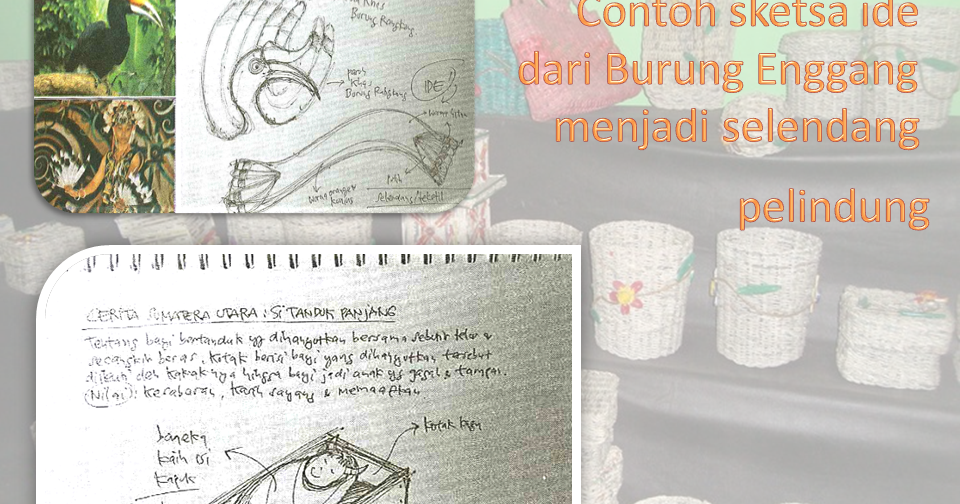 Contoh sketsa ide
dari Burung Enggang
menjadi selendang
pelindung
Burung Rangkong
Burung Rangkong
IDE
Selendang/tekstil
CERITA SUMATERA UTARA : SI TANDUK PANJANG
Tentang bayi bertanduk yg dihanyutkan bersama sebutir telur &
secangkir beras. Kotak berisi bayi yang dihanyutkan tersebut
diikuti oleh kakaknya hingga bayi jadi anak yg gagah & tampan.
Nilai : Kesabaran, Kasih sayang & Memaafkan
boneka
kain isi
kapuk
kotak kayu